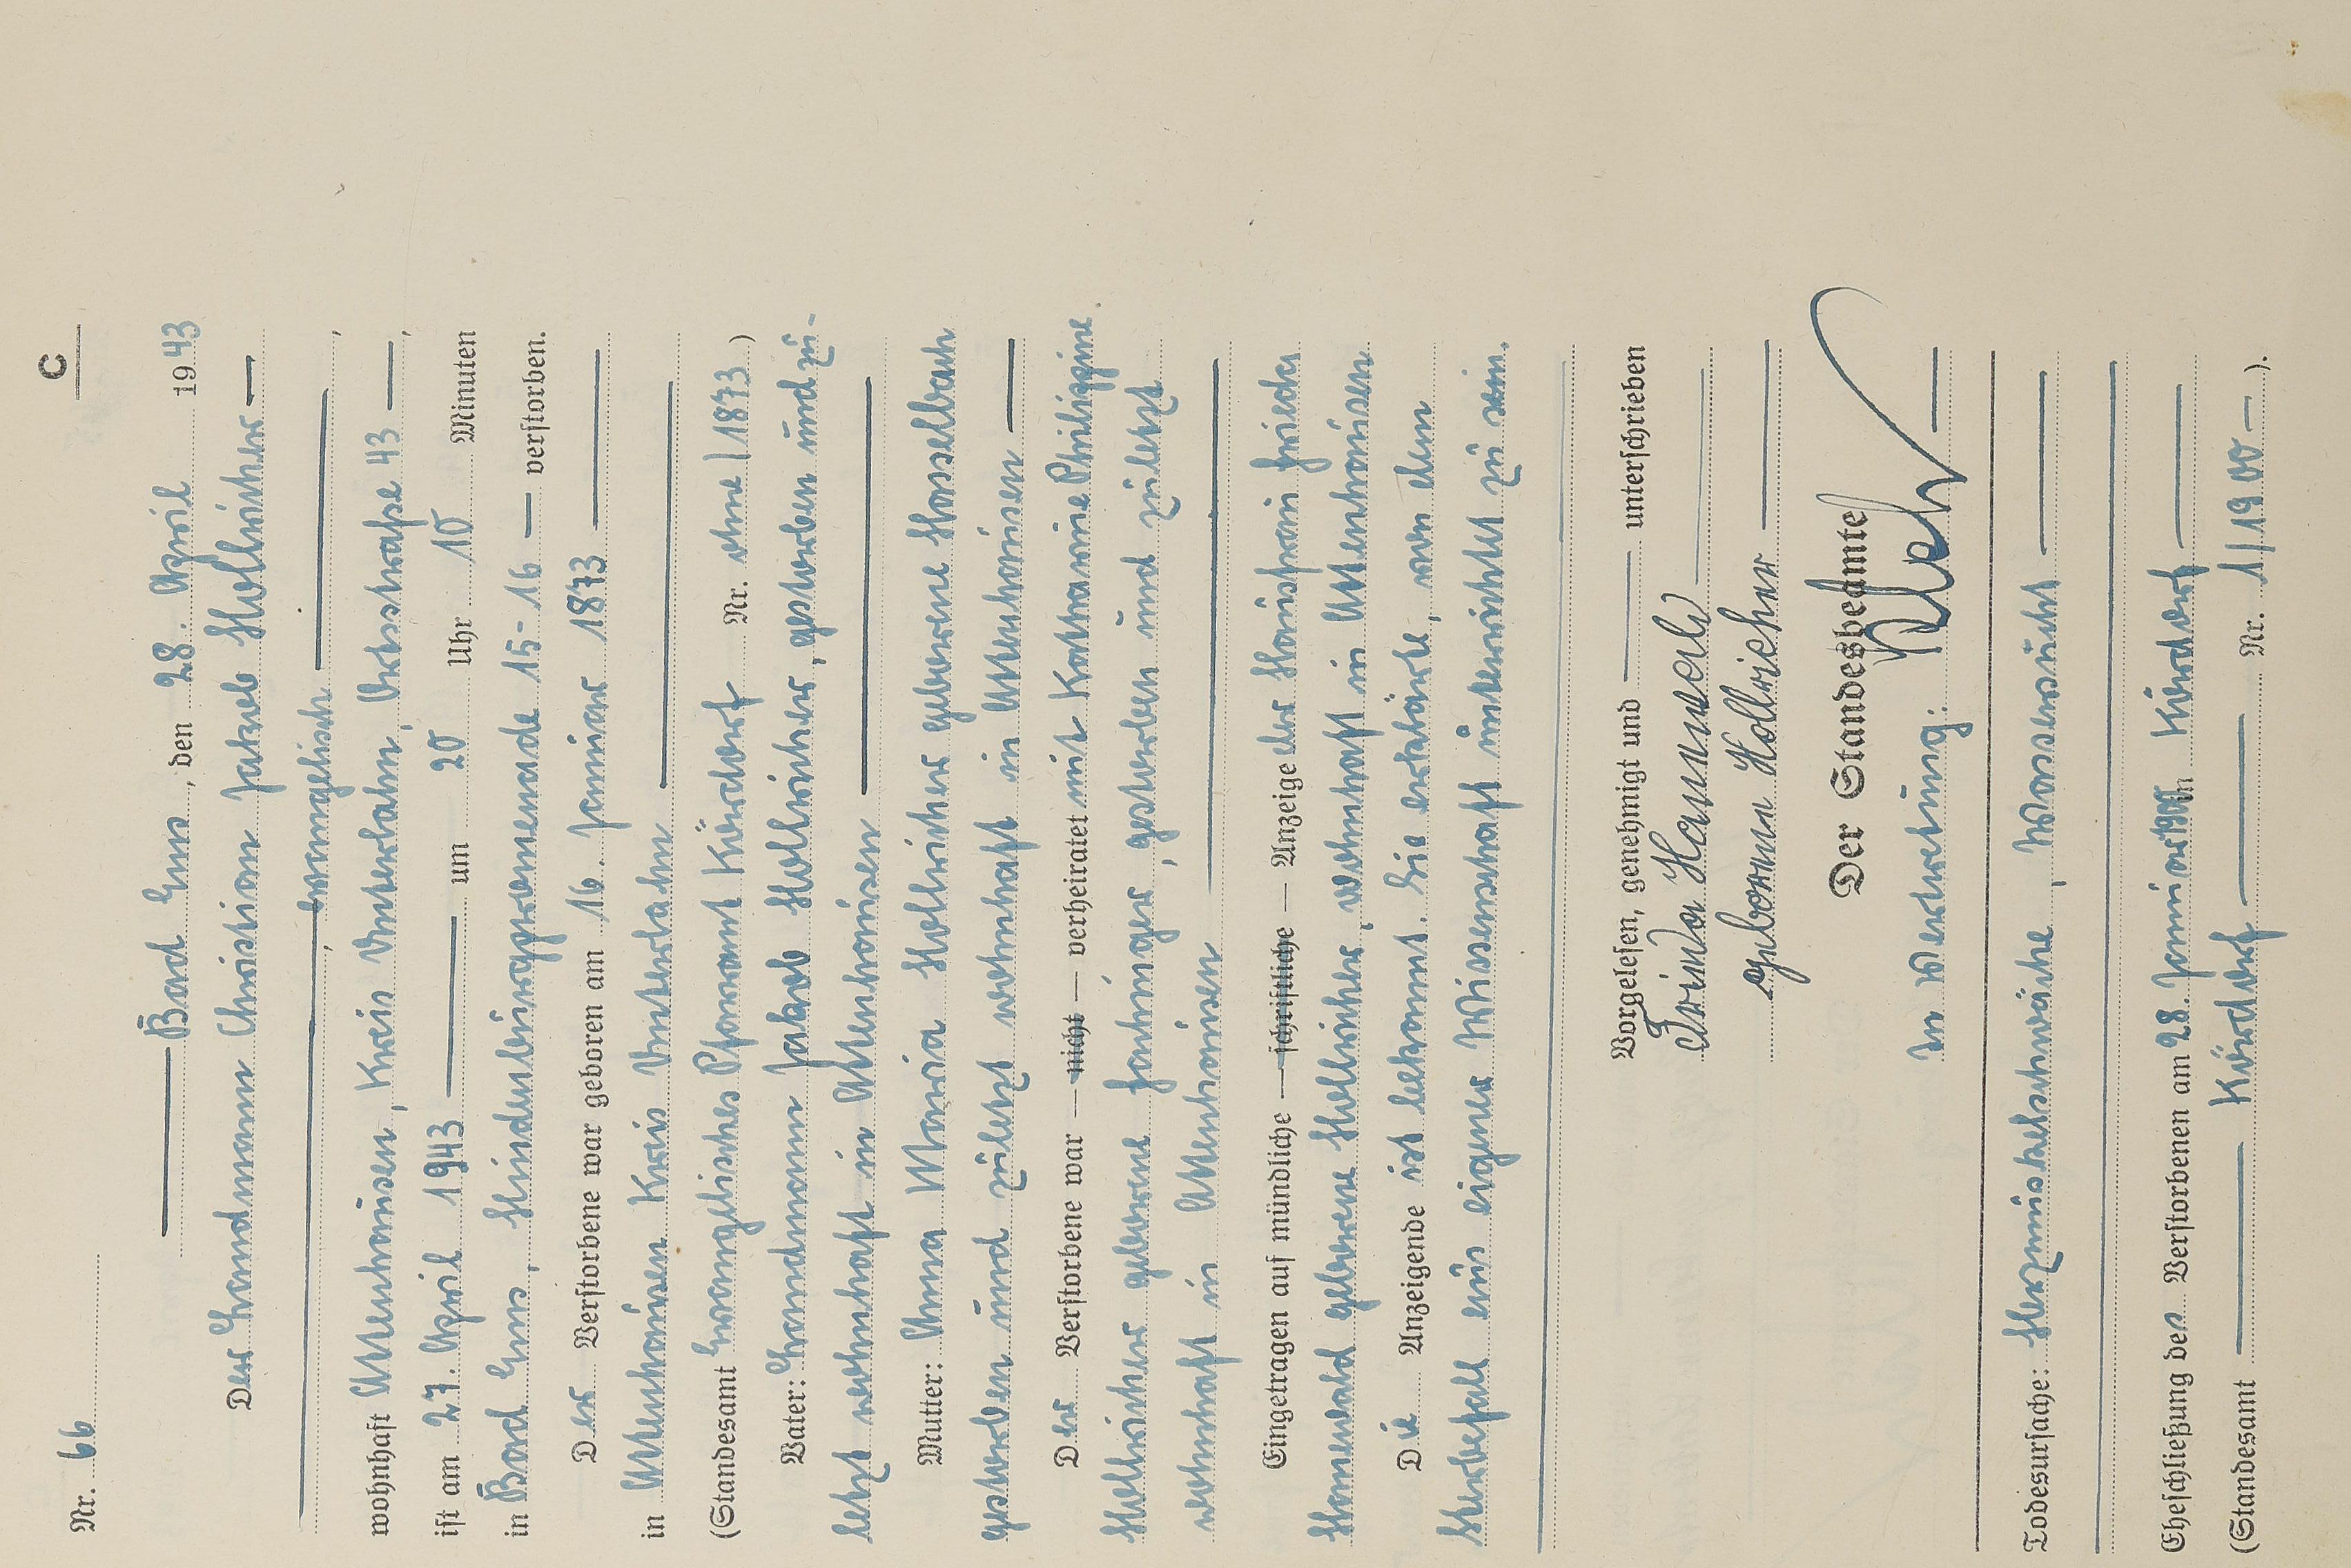 C
Nr. 66
Bad Ems, den 28. April 1943
Der Landmann Christian Jakob Hollricher
, evangelisch,
wohnhaft Attenhausen, Kreis Unterlahn, Ortsstraße 43,
ist am 27. April 1943 um 20 Uhr 10 Minuten
in Bad Ems, Hindenburgpromenade 15-16 verstorben.
Der Verstorbene war geboren am 16. Januar 1873
in Attenhausen Kreis Unterlahn
(Standesamt Evangelisches Pfarramt Kördorf Nr. ohne/1873)
Vater: Landmann Jakob Hollricher, gestorben und zu-
letzt wohnhaft in Attenhausen
Mutter: Anna Maria Hollricher geborene Hasselbach
gestorben und zuletzt wohnhaft in Attenhausen
Der Verstorbene war — nicht — verheiratet mit Katharine Philippine
Hollricher geborene, gestorben und zuletzt
wohnhaft in Attenhausen
Eingetragen auf mündliche — schriftliche — Anzeige der Hausfrau Frieda
geborene Hollricher, wohnhaft in Attenhausen
Die Anzeigende ist bekannt. Sie erklärte, von dem
Sterbefall aus eigener Wissenschaft unterrichtet zu sein.
Vorgelesen, genehmigt und unterschrieben
Frieda
geborene Hollricher
Der Standesbeamte
In Vertretung:
Todesursache: Herzmuskelschwäche, Wassersucht
Eheschließung des Verstorbenen am 28. Januar 1900 in Kördorf
(Standesamt Kördorf Nr. 1/1900).